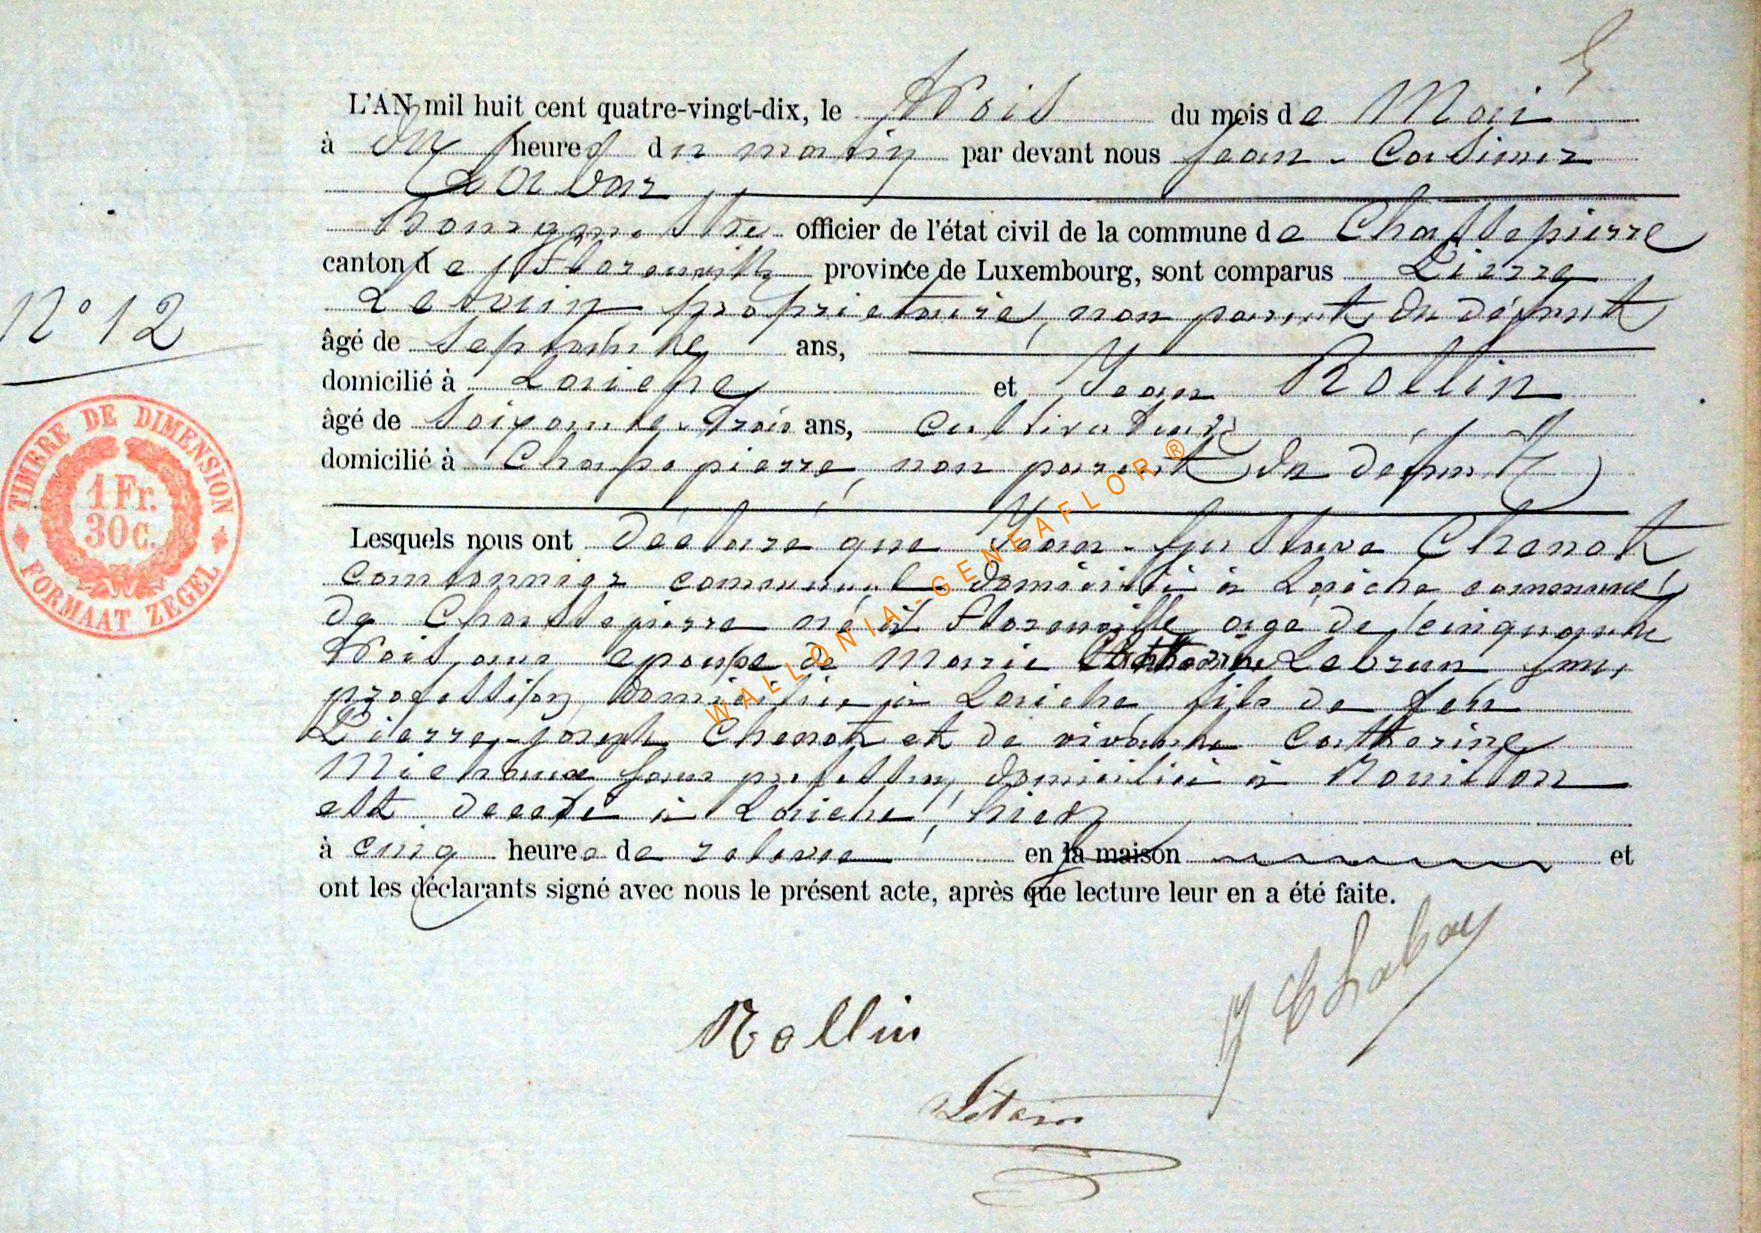 L'AN mil huit cent quatre-vingt-dix, le trois du mois de Mai
à dix heures du matin par devant nous Jean-Casimir
Labar
Bourgmestre officier de l'état civil de la commune de Chassepierre
canton de Florenville province de Luxembourg, sont comparus Pierre
propriétaire, non parent du défunt
âgé de septante ans,
domicilié à Laiche et Jean Rollin
âgé de soixante-trois ans, cultivateur
domicilié à Chassepierre, non parent du défunt
Lesquels nous ont déclaré que Jean-Gustave Chenot
cantonnier communal domicilié à Laiche commune
de Chassepierre né à Florenville âgé de cinquante
trois ans epoux de Marie Lebrun sans
profession, domiciliée à Laiche fils de feu
Pierre-Joseph Chenot et de vivante Catherine
sans profession, domiciliée à Bouillon
est décédé à Laiche, hier
à cinq heures de relevée en la maison et
ont les déclarants signé avec nous le présent acte, après que lecture leur en a été faite.
N° 12
TIMBRE DE DIMENSION
1 Fr.
30 c.
FORMAAT ZEGEL
WALLONIA-GENEAFLOR®
Rollin